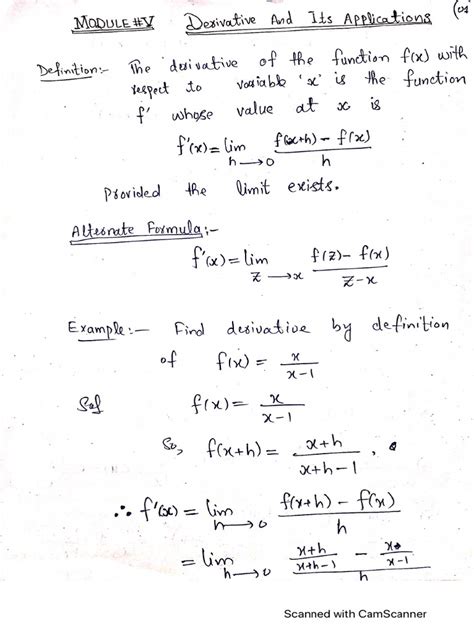 (01
MODULE #V Derivative And Its Applications
Definition:- The derivative of the function f(x) with
respect to variable 'x' is the function
f' whose value at x is
f'(x) = lim h→0 (f(x+h) - f(x))/h
Provided the limit exists.
Alternate Formula:-
f'(x) = lim z→x (f(z) - f(x))/(z-x)
Example:- Find derivative by definition
of f(x) = x/(x-1)
Sol f(x) = x/(x-1)
So, f(x+h) = (x+h)/(x+h-1),
∴ f'(x) = lim h→0 (f(x+h) - f(x))/h
= lim h→0 ((x+h)/(x+h-1) - x/(x-1))/h
Scanned with CamScanner